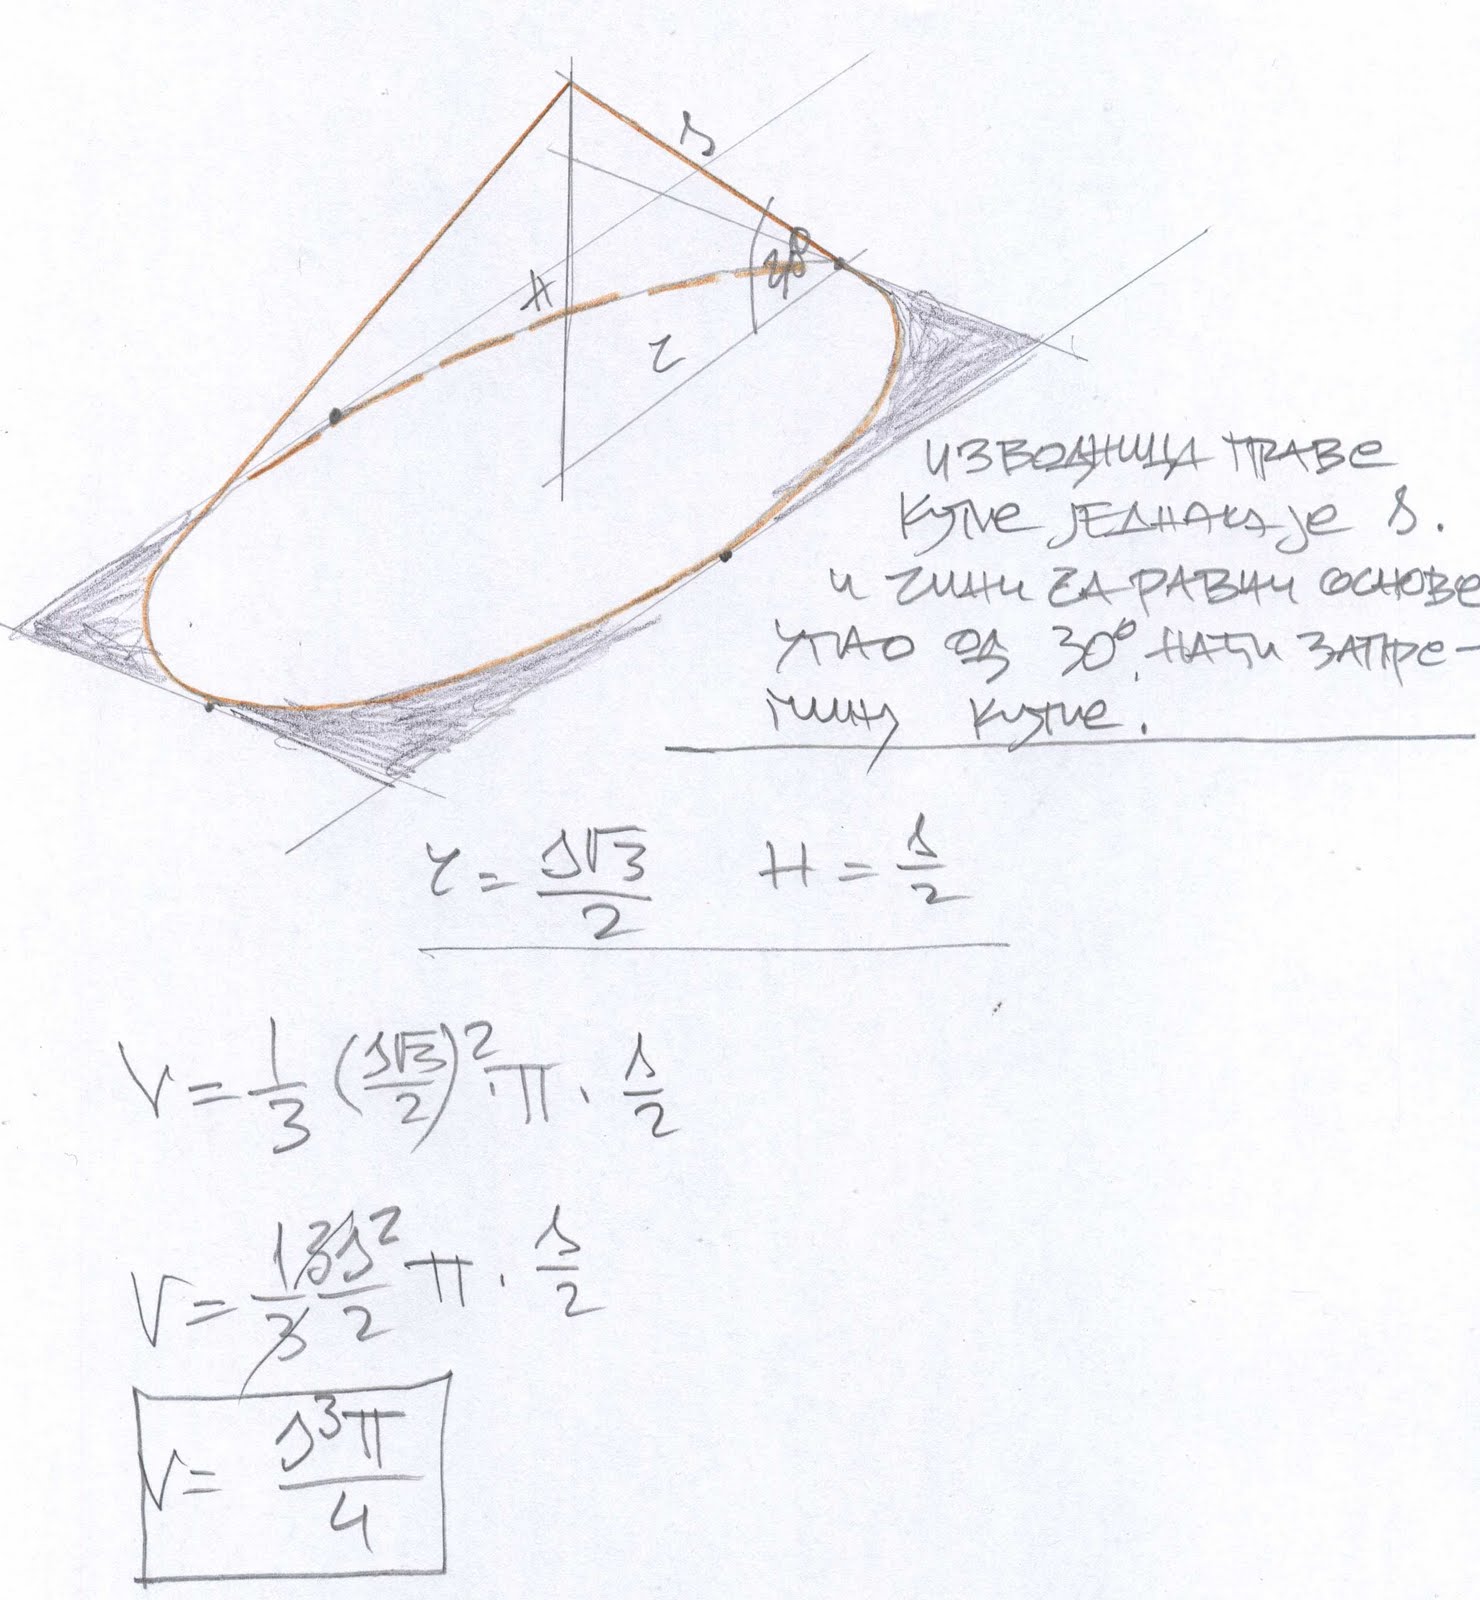 s
H
r
изводница праве
купе једнака је s.
и чини са равни основе
угао од 30°. наћи запре-
мину купе.
r = s√3/2 H = s/2
V = 1/3 (s√3/2)² · π · s/2
V = 1/3 3s²/2 π · s/2
V = s³π/4